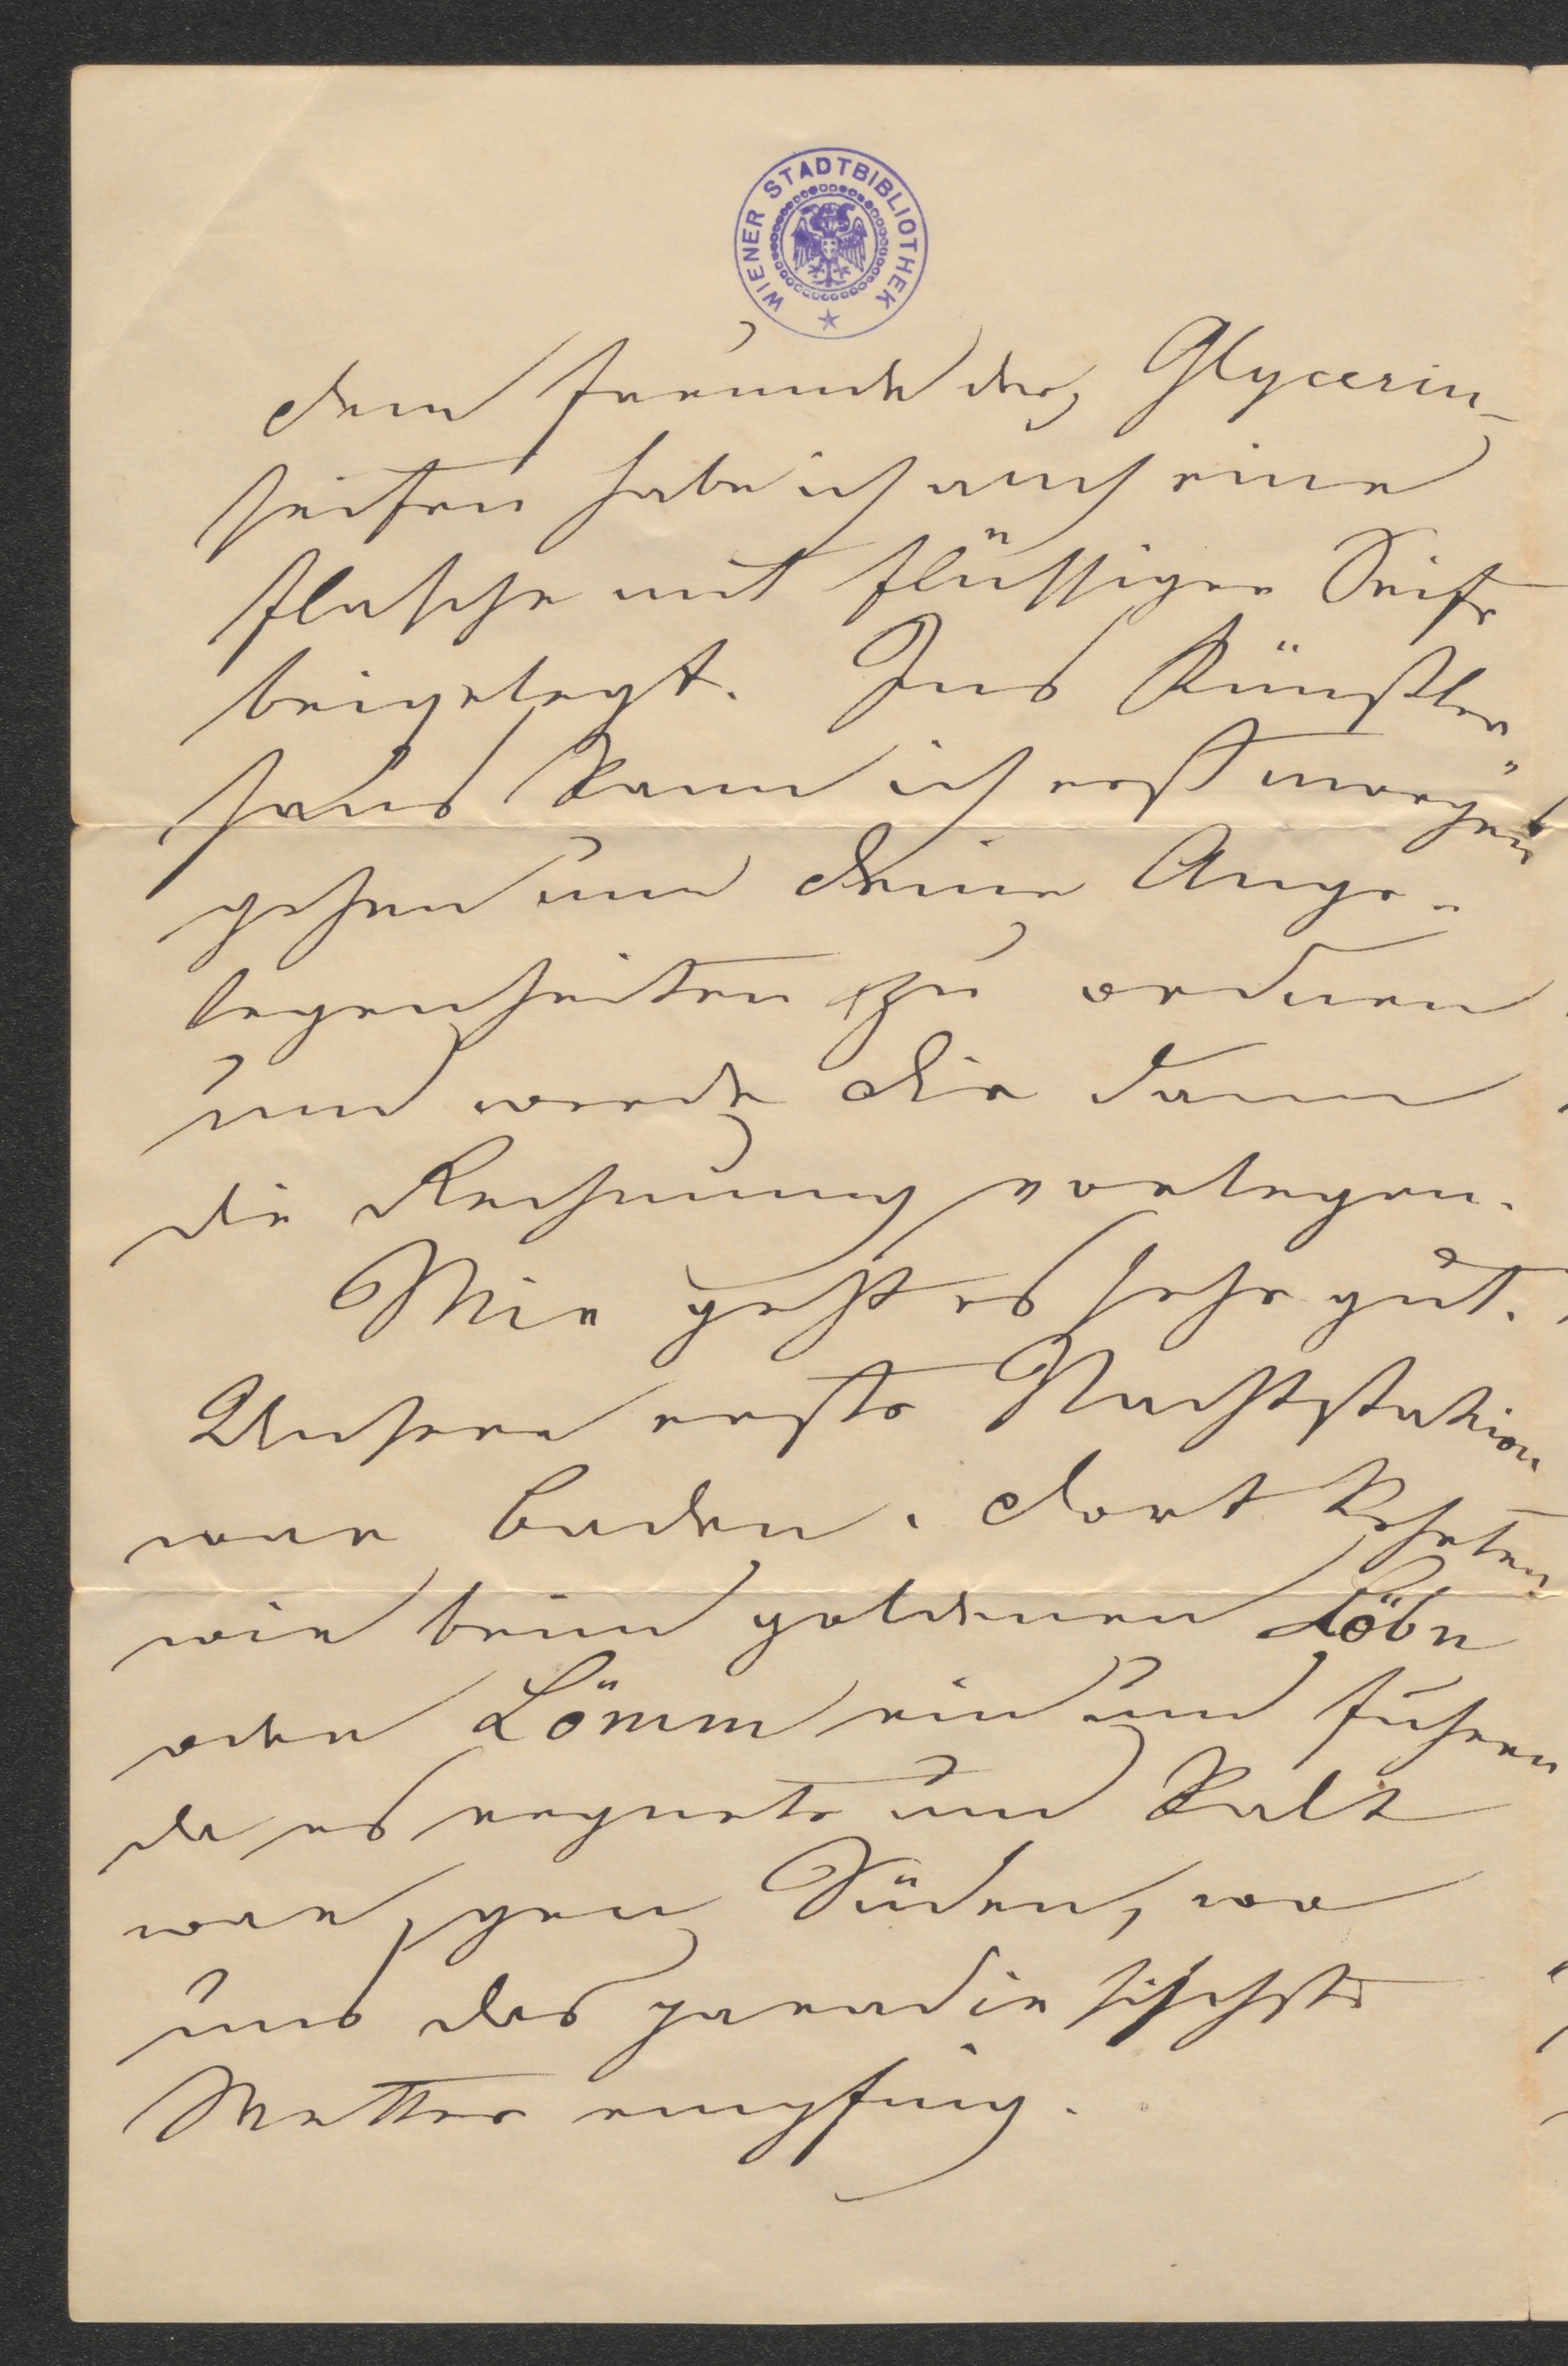 WIENER STADTBIBLIOTHEK
dem Freunde der Glycerin-
seifen habe ich auch eine
Flasche mit flüssiger Seife
beigelegt. Ins Künstler
haus kann ich erst morgen
gehen um deine Ange-
legenheiten zu ordnen
und werde dir dann
die Rechnung vorlegen.
Mir geht es sehr gut.
Unsere erste Nachtstation
war Baden. Dort kehrten
wir beim goldenen Löbn
oder Lömm ein und fuhren
da es regnete und kalt
war, gen Süden, wo
uns das paradiesischste
Wetter empfing.